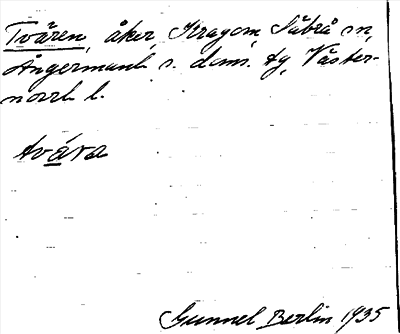 Tvären, åker, Kragom, Säbrå sn,
Ångermanl. s. doms. tg, Väster-
norrl. l.
tvára
Gunnel Berlin 1935